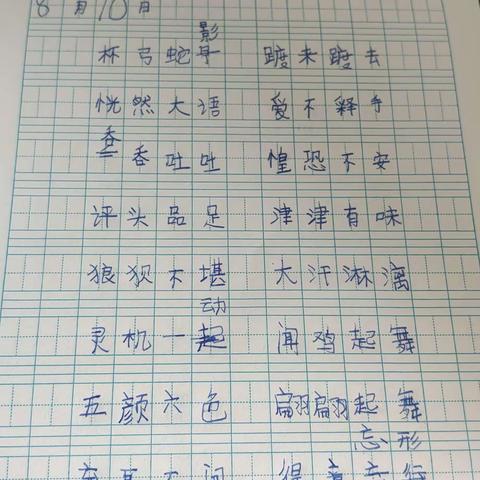 8月10日
影
杯弓蛇 踱来踱去
恍然大语 爱不释手
吞
吞吐吐 惶恐不安
评头品足 津津有味
狼狈不堪 大汗淋漓
动
灵机一起 闻鸡起舞
五颜六色 翩翩起舞
忘形
充耳不闻 得意